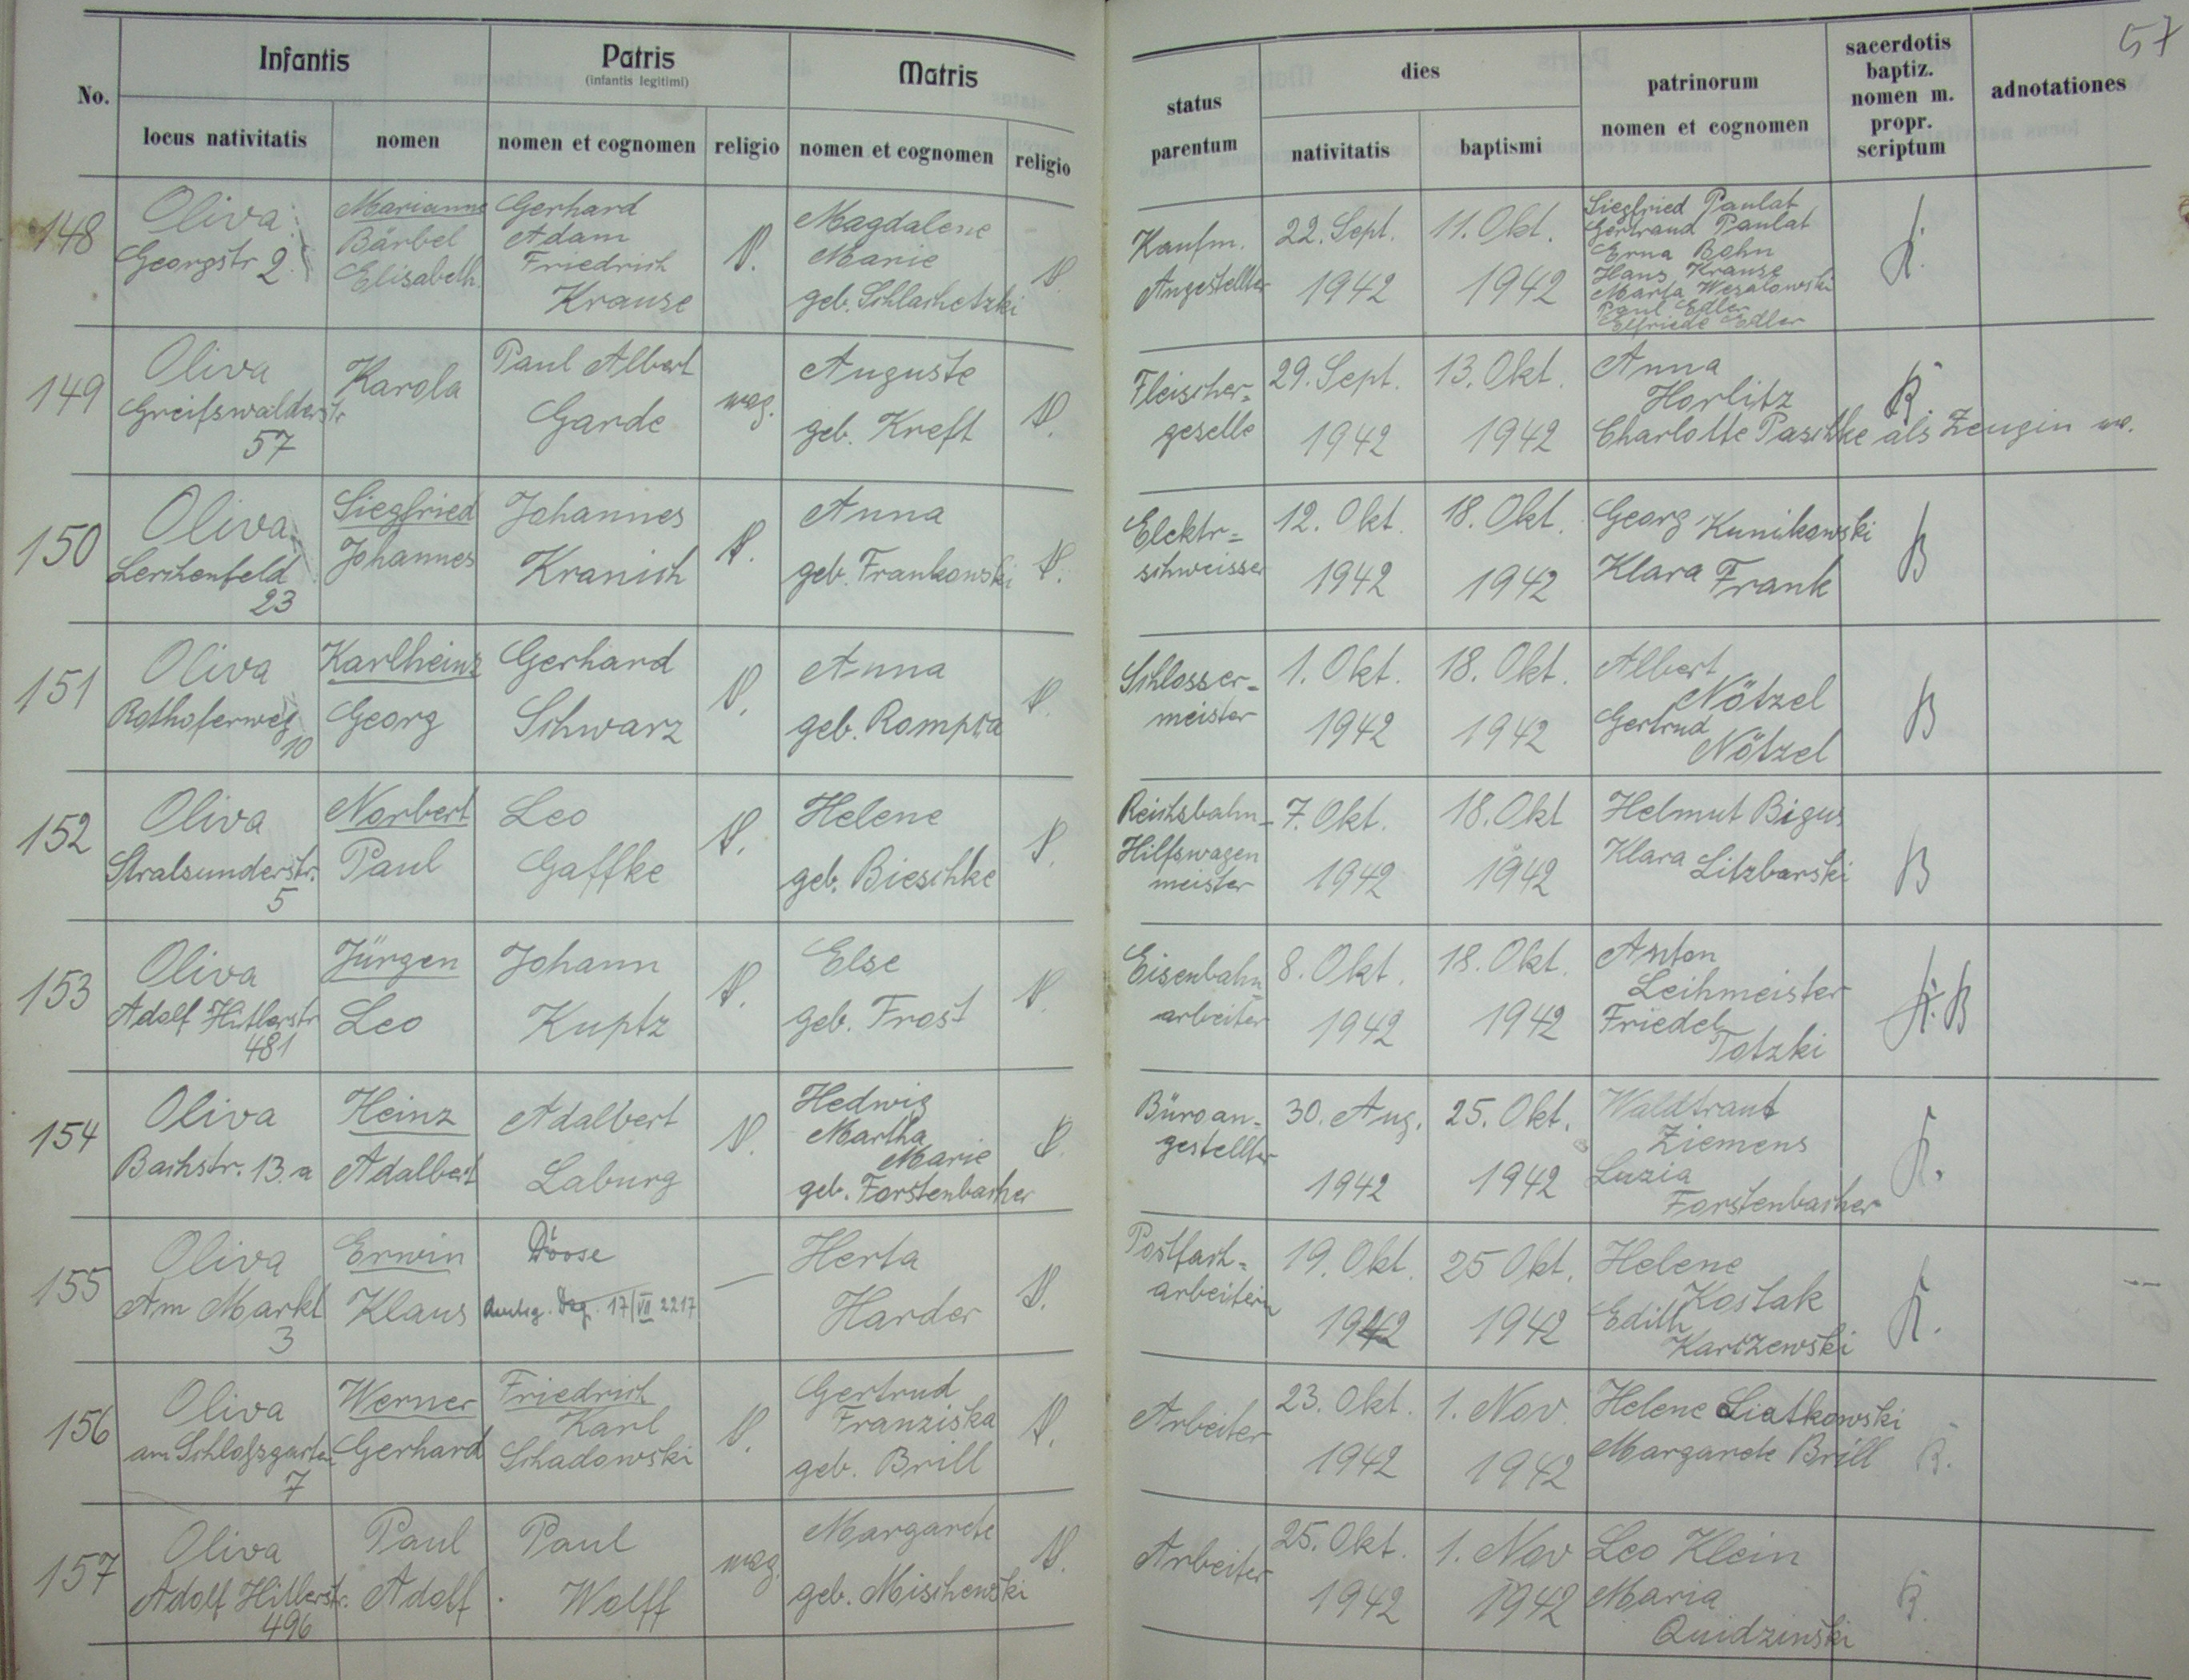 57
No.
Infantis
Patris
(infantis legitimi)
Matris
locus nativitatis
nomen
nomen et cognomen
religio
nomen et cognomen
religio
status
parentum
dies
nativitatis
baptismi
patrinorum
nomen et cognomen
sacerdotis
baptiz.
nomen m.
propr.
scriptum
adnotationes
148
Oliva
Georgstr 2.
Marianne
Bärbel
Elisabeth
Gerhard
Adam
Friedrich
Krause
Magdalene
Marie
geb. Schlachetzki
Kaufm.
Angestellter
22. Sept.
1942
11. Okt.
1942
Siegfried Paulat
Gertraud Paulat
Erna Bohn
Hans Krause
Marta Wesalowski
Paul Edler
Elfriede Edler
K.
149
Oliva
Greifswalderstr
57
Karola
Paul Albert
Garde
Auguste
geb. Kreft
Fleischer=
geselle
29. Sept.
1942
13. Okt.
1942
Anna
Horlitz
Charlotte Paschke als Zeugin
K.
150
Oliva
Lerchenfeld
23
Siegfried
Johannes
Johannes
Kranich
Anna
geb. Frankowski
Elektr=
schweisser
12. Okt.
1942
18. Okt.
1942
Georg Kunikowski
Klara Frank
B
151
Oliva
Rothoferweg
10
Karlheinz
Georg
Gerhard
Schwarz
Anna
geb. Rompca
Schlosser-
meister
1. Okt.
1942
18. Okt.
1942
Albert
Nötzel
Gertrud
Nötzel
B
152
Oliva
Stralsunderstr.
5
Norbert
Paul
Leo
Gaffke
Helene
geb. Bieschke
Reichsbahn-
Hilfswagen
meister
7. Okt.
1942
18. Okt
1942
Helmut Bigus
Klara Litzbarski
B
153
Oliva
Adolf Hitlerstr
481
Jürgen
Leo
Johann
Kuptz
Else
geb. Frost
Eisenbahn-
arbeiter
8. Okt.
1942
18. Okt.
1942
Anton
Leihmeister
Friedel
Totzki
K. B
154
Oliva
Bachstr. 13.a
Heinz
Adalbert
Adalbert
Laburg
Hedwig
Martha
Marie
geb. Forstenbacher
Büroan-
gestellter
30. Aug.
1942
25. Okt.
1942
Waldtraut
Ziemens
Luzia
Forstenbacher
K.
155
Oliva
Am Markt
3
Erwin
Klaus
Döose
17/VII 2217
Herta
Harder
Postfach-
arbeiterin
19. Okt.
1942
25 Okt.
1942
Helene
Kostak
Edith
Karczewski
K.
156
Oliva
am Schloßgarten
7
Werner
Gerhard
Friedrich
Karl
Schadowski
Gertrud
Franziska
geb. Brill
Arbeiter
23. Okt.
1942
1. Nov.
1942
Helene Liatkowski
Margarete Brill
K.
157
Oliva
Adolf Hitlerstr.
496
Paul
Adolf
Paul
Wolff
Margarete
geb. Mischewski
Arbeiter
25. Okt.
1942
1. Nov
1942
Leo Klein
Maria
Quidzinski
K.